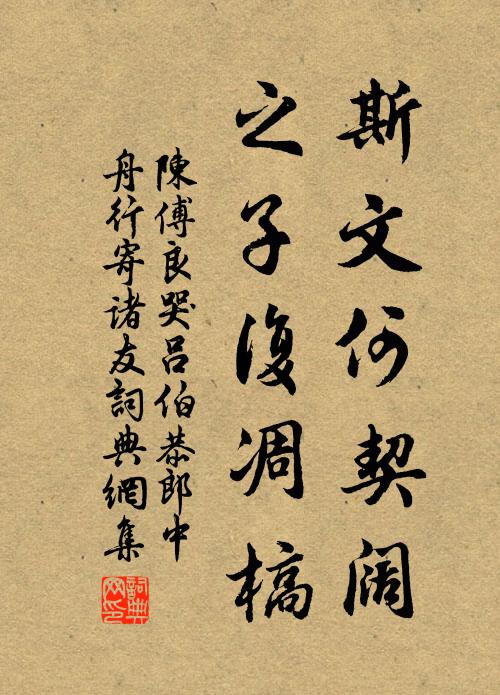 斯文何契阔
之子復凋槁
陳傅良哭吕伯恭郎中
舟行寄诸友詞典網集
詞典网印